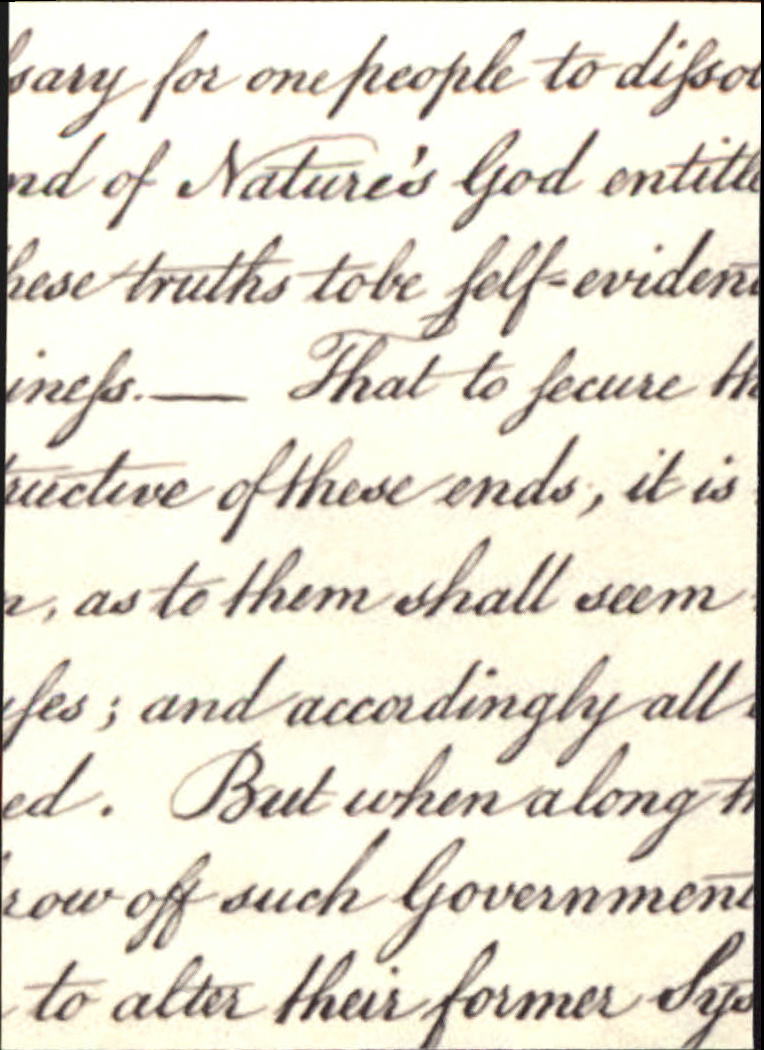 ſsary for one people to diſsol
nd of Nature's God entitle
hese truths to be ſelf-evident
ineſs. — That to ſecure th
ructive of these ends, it is
n, as to them shall seem
uſes; and accordingly all
ed. But when a long tr
row off such Government
to alter their former Sys